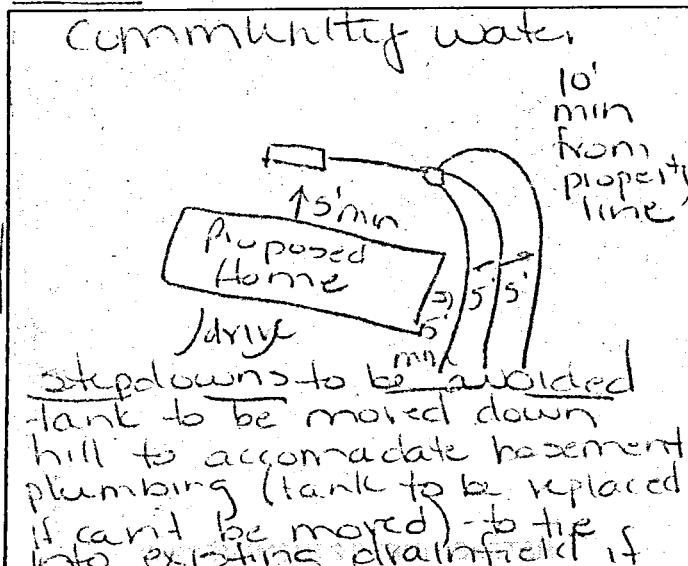 Community water
10'
min
from
property
line
5' min
Proposed
Home
5' 5'
5'
min
drive
stepdowns to be avoided
tank to be moved down
hill to accomadate basement
plumbing (tank to be replaced
if can't be moved) - to tie
into existing drainfield if